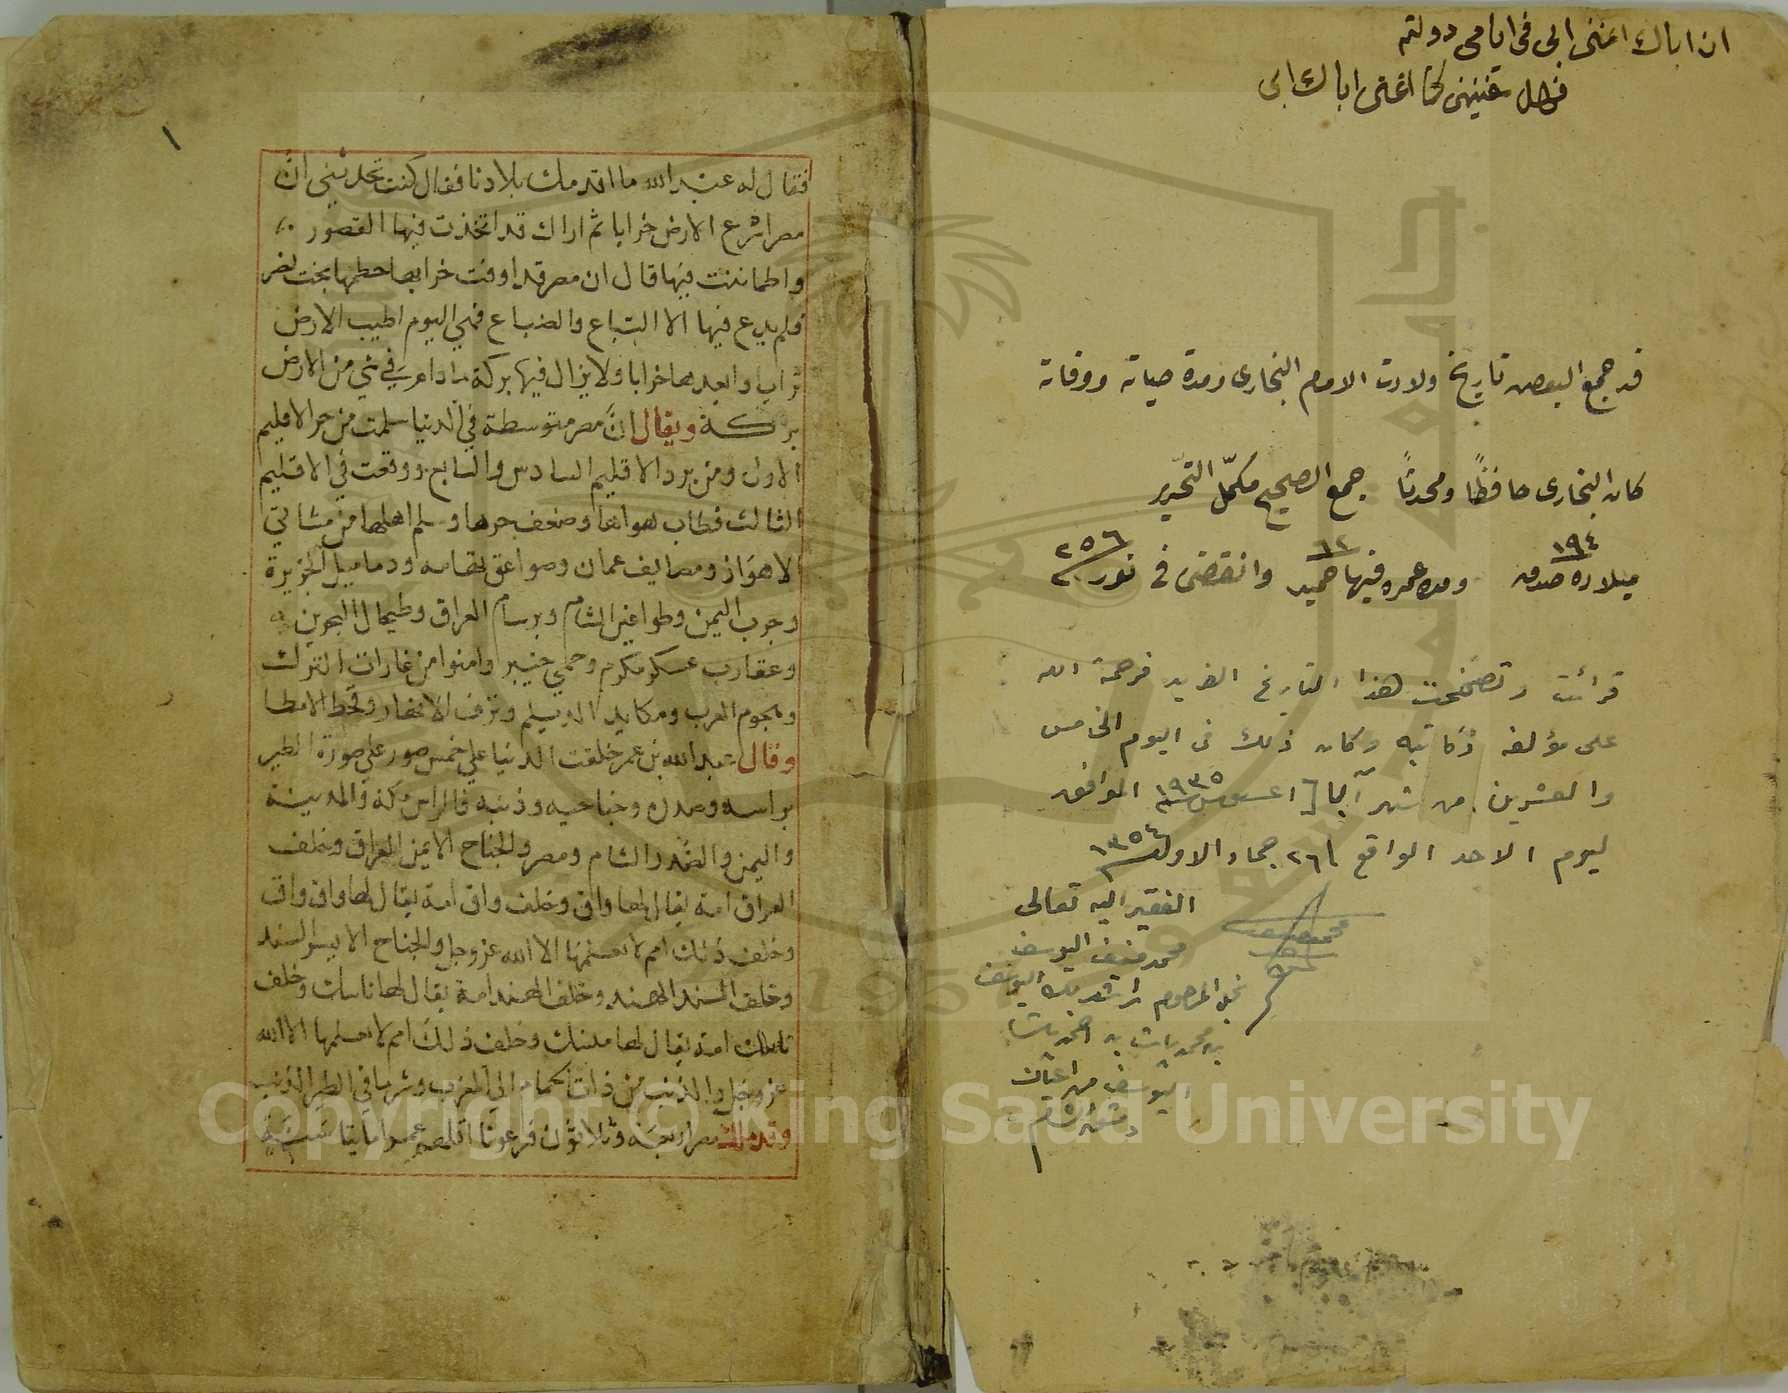 ان اباك اغنى ابى فى ايامى دولته
فهل تغنينى كما اغنى اباك ابى
قد جمع البعض تاريخ ولادت الامام البخارى ومدة حياته ووفاته
كان البخارى حافظًا ومحدثًا جمع الصحيح مكمّل التحرير
١٩٤ ٦٢ ٢٥٦
ميلاده صدق ومدة عمره فيها حميد وانقضى فى نور
قرائت وتصفحت هذا التاريخ الفريد فرحمة الله
على مؤلفه وكاتبه وكان ذلك فى اليوم الخامس
والعشرين من شهر آب [اغسطس ١٩٣٥ الموافق
ليوم الاحد الواقع ٢٦ جماد الاول ١٣٥٤
الفقير اليه تعالى
محمد اليوسف
نجل المرحوم راشد بك اليوسف
بن محمد باشا بن احمد باشا
اليوسف من اعيان
دمشق الشام
١
فقال له عبد الله ما اقدمك بلادنا فقال كنت تحدثني انّ
مصر اسرع الارض خرابا ثم اراك قد اتخذت فيها القصور
واطماننت فيها قال ان مصر قد اوفت خرابها حطمها بخت نصر
فلم يدع فيها الا السباع والضباع فهي اليوم اطيب الارض
ترابا وابعدها خرابا ولا يزال فيها بركة ما دام في شي من الارض
بركة ويقال انّ مصر متوسطة في الدنيا سلمت من حر الاقليم
الاول ومن برد الاقليم السادس والسابع ووقعت في الاقليم
الثالث فطاب هواها وضعف حرها وسلم اهلها من مشاتي
الاهواز ومصايف عمان وصواعق تهامه ودماميل الجزيرة
وجرب اليمن وطواعين الشام وبرسام العراق وطحال البحرين
وعقارب عسكر مكرم وحمى خيبر وامنوا من غارات الترك
وهجوم العرب ومكايد الديلم ونزف الانهار وقحط الامطار
وقال عبد الله بن عمر خلقت الدنيا على خمس صور على صورة الطير
براسه وصدره وجناحيه وذنبه فالراس مكة والمدينة
واليمن والصدر الشام ومصر والجناح الايمن العراق وخلف
العراق امة يقال لها واق وخلف واق امة يقال لها واق واق
وخلف ذلك امم لا يعلمها الا الله عز وجل والجناح الايسر السند
وخلف السند الهند وخلف الهند امة يقال لها ناسك وخلف
ناسك امة يقال لها منسك وخلف ذلك امم لا يعلمها الا الله
عز وجل والذنب من ذات الحمام الى المغرب وشر ما في الطير الذنب
وقد ملك مصر اربعة وثلاثون فرعونا اقلهم عمرا مايتا سنة
Copyright © King Saud University
1957